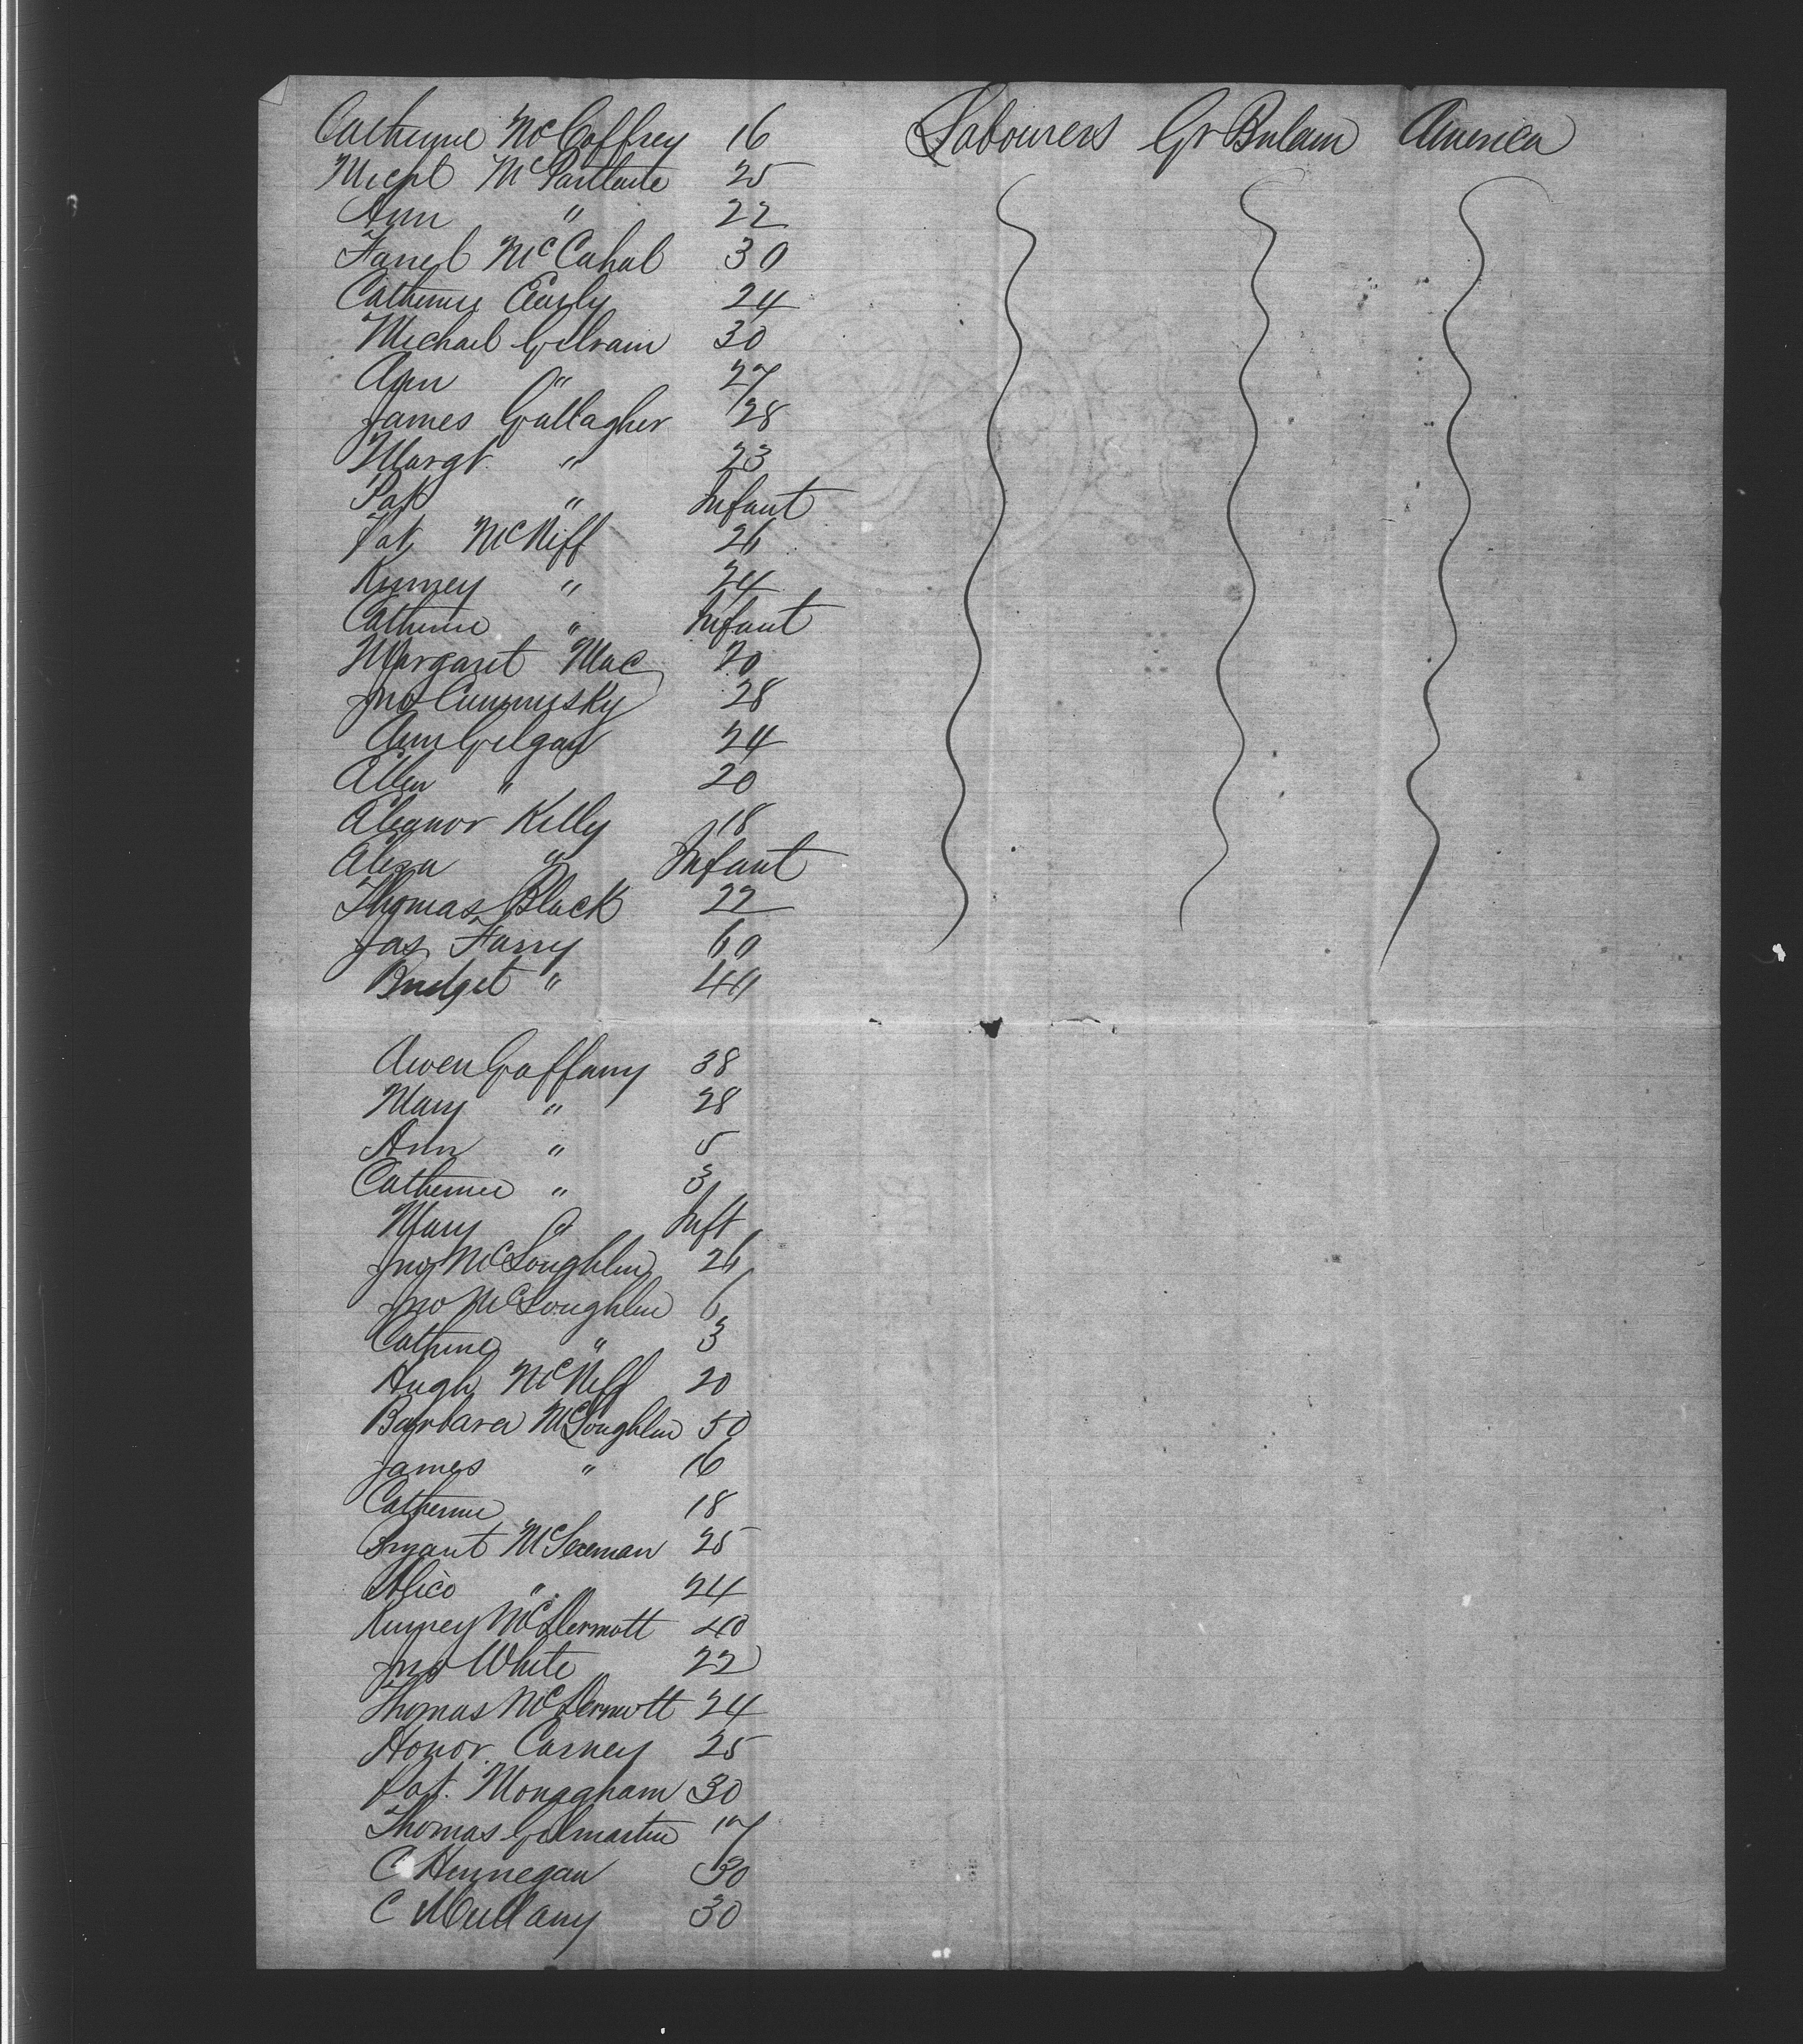 Catherine McCaffrey 16 Labourers Gr Britain America
Michl McPartlan 25
Ann " 22
Farrel McCahal 30
Catherine Early 24
Michael Gilrain 30
Ann " 27
James Gallagher 28
Margt " 23
Pat " Infant
Pat McNiff 26
Kinney " 24
Catherine " Infant
Margaret Mac 20
Jno Cummusky 28
Ann Gilgan 24
Ellen " 20
Eleanor Kelly 18
Eliza " Infant
Thomas Black 22
Jas Farry 60
Bridget " 40
Owen Gaffany 38
Mary " 28
Ann " 5
Catherine " 3
Mary " Inft
Jno McLoughlin 26
Jno McLoughlin 6
Cathrine " 3
Hugh McNiff 20
Barbara McLoughlin 50
James " 16
Catherine 18
Bryant 25
Alice " 24
Kinney McDermott 40
Jno White 22
Thomas McDermott 24
Honor Carney 25
Pat. Monagham 30
Thomas Gilmartin 17
C Hennegan 30
C Mullany 30